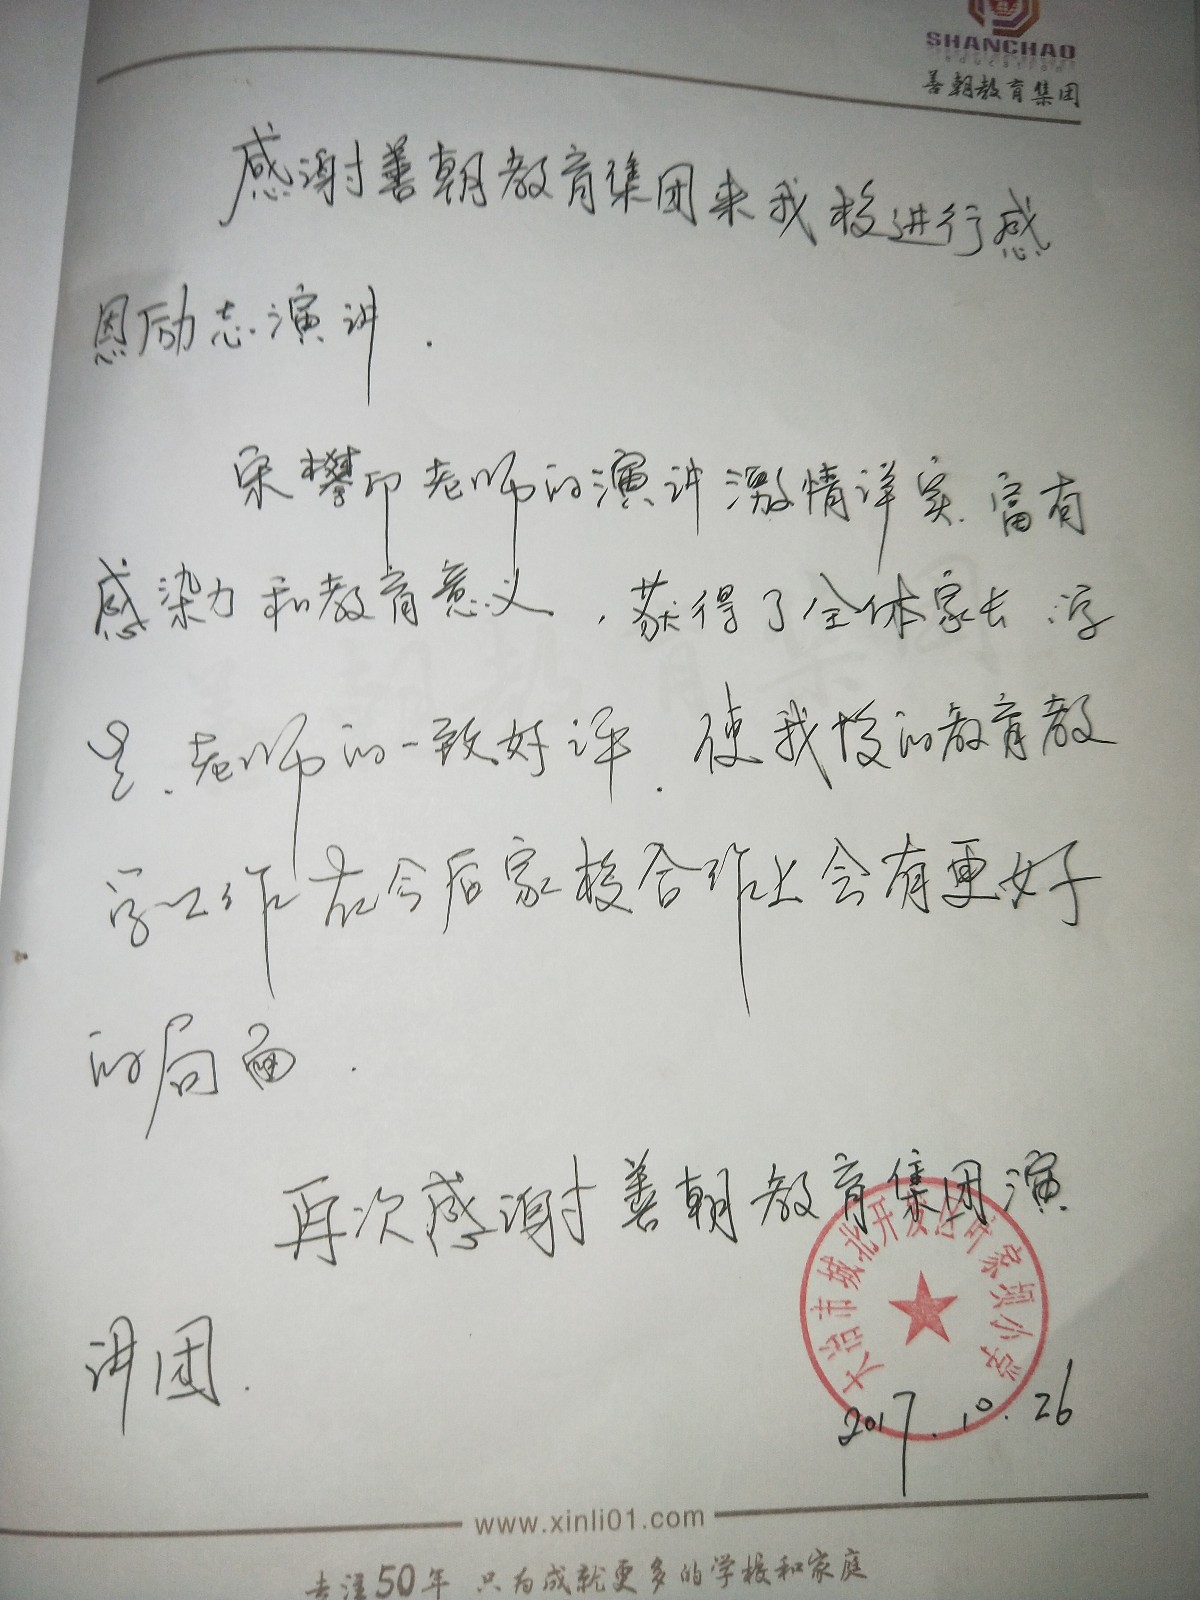 SHANCHAO
EDUCATION
善朝教育集团
感谢善朝教育集团来我校进行感
恩励志演讲.
宋攀印老师的演讲激情详实.富有
感染力和教育意义,获得了全体家长.学
生.老师的一致好评.使我校的教育教
学工作在今后家校合作上会有更好
的局面.
再次感谢善朝教育集团演
讲团.
大冶市城北开发区叶家坝小学
2017.10.26
www.xinli01.com
专注50年 只为成就更多的学校和家庭